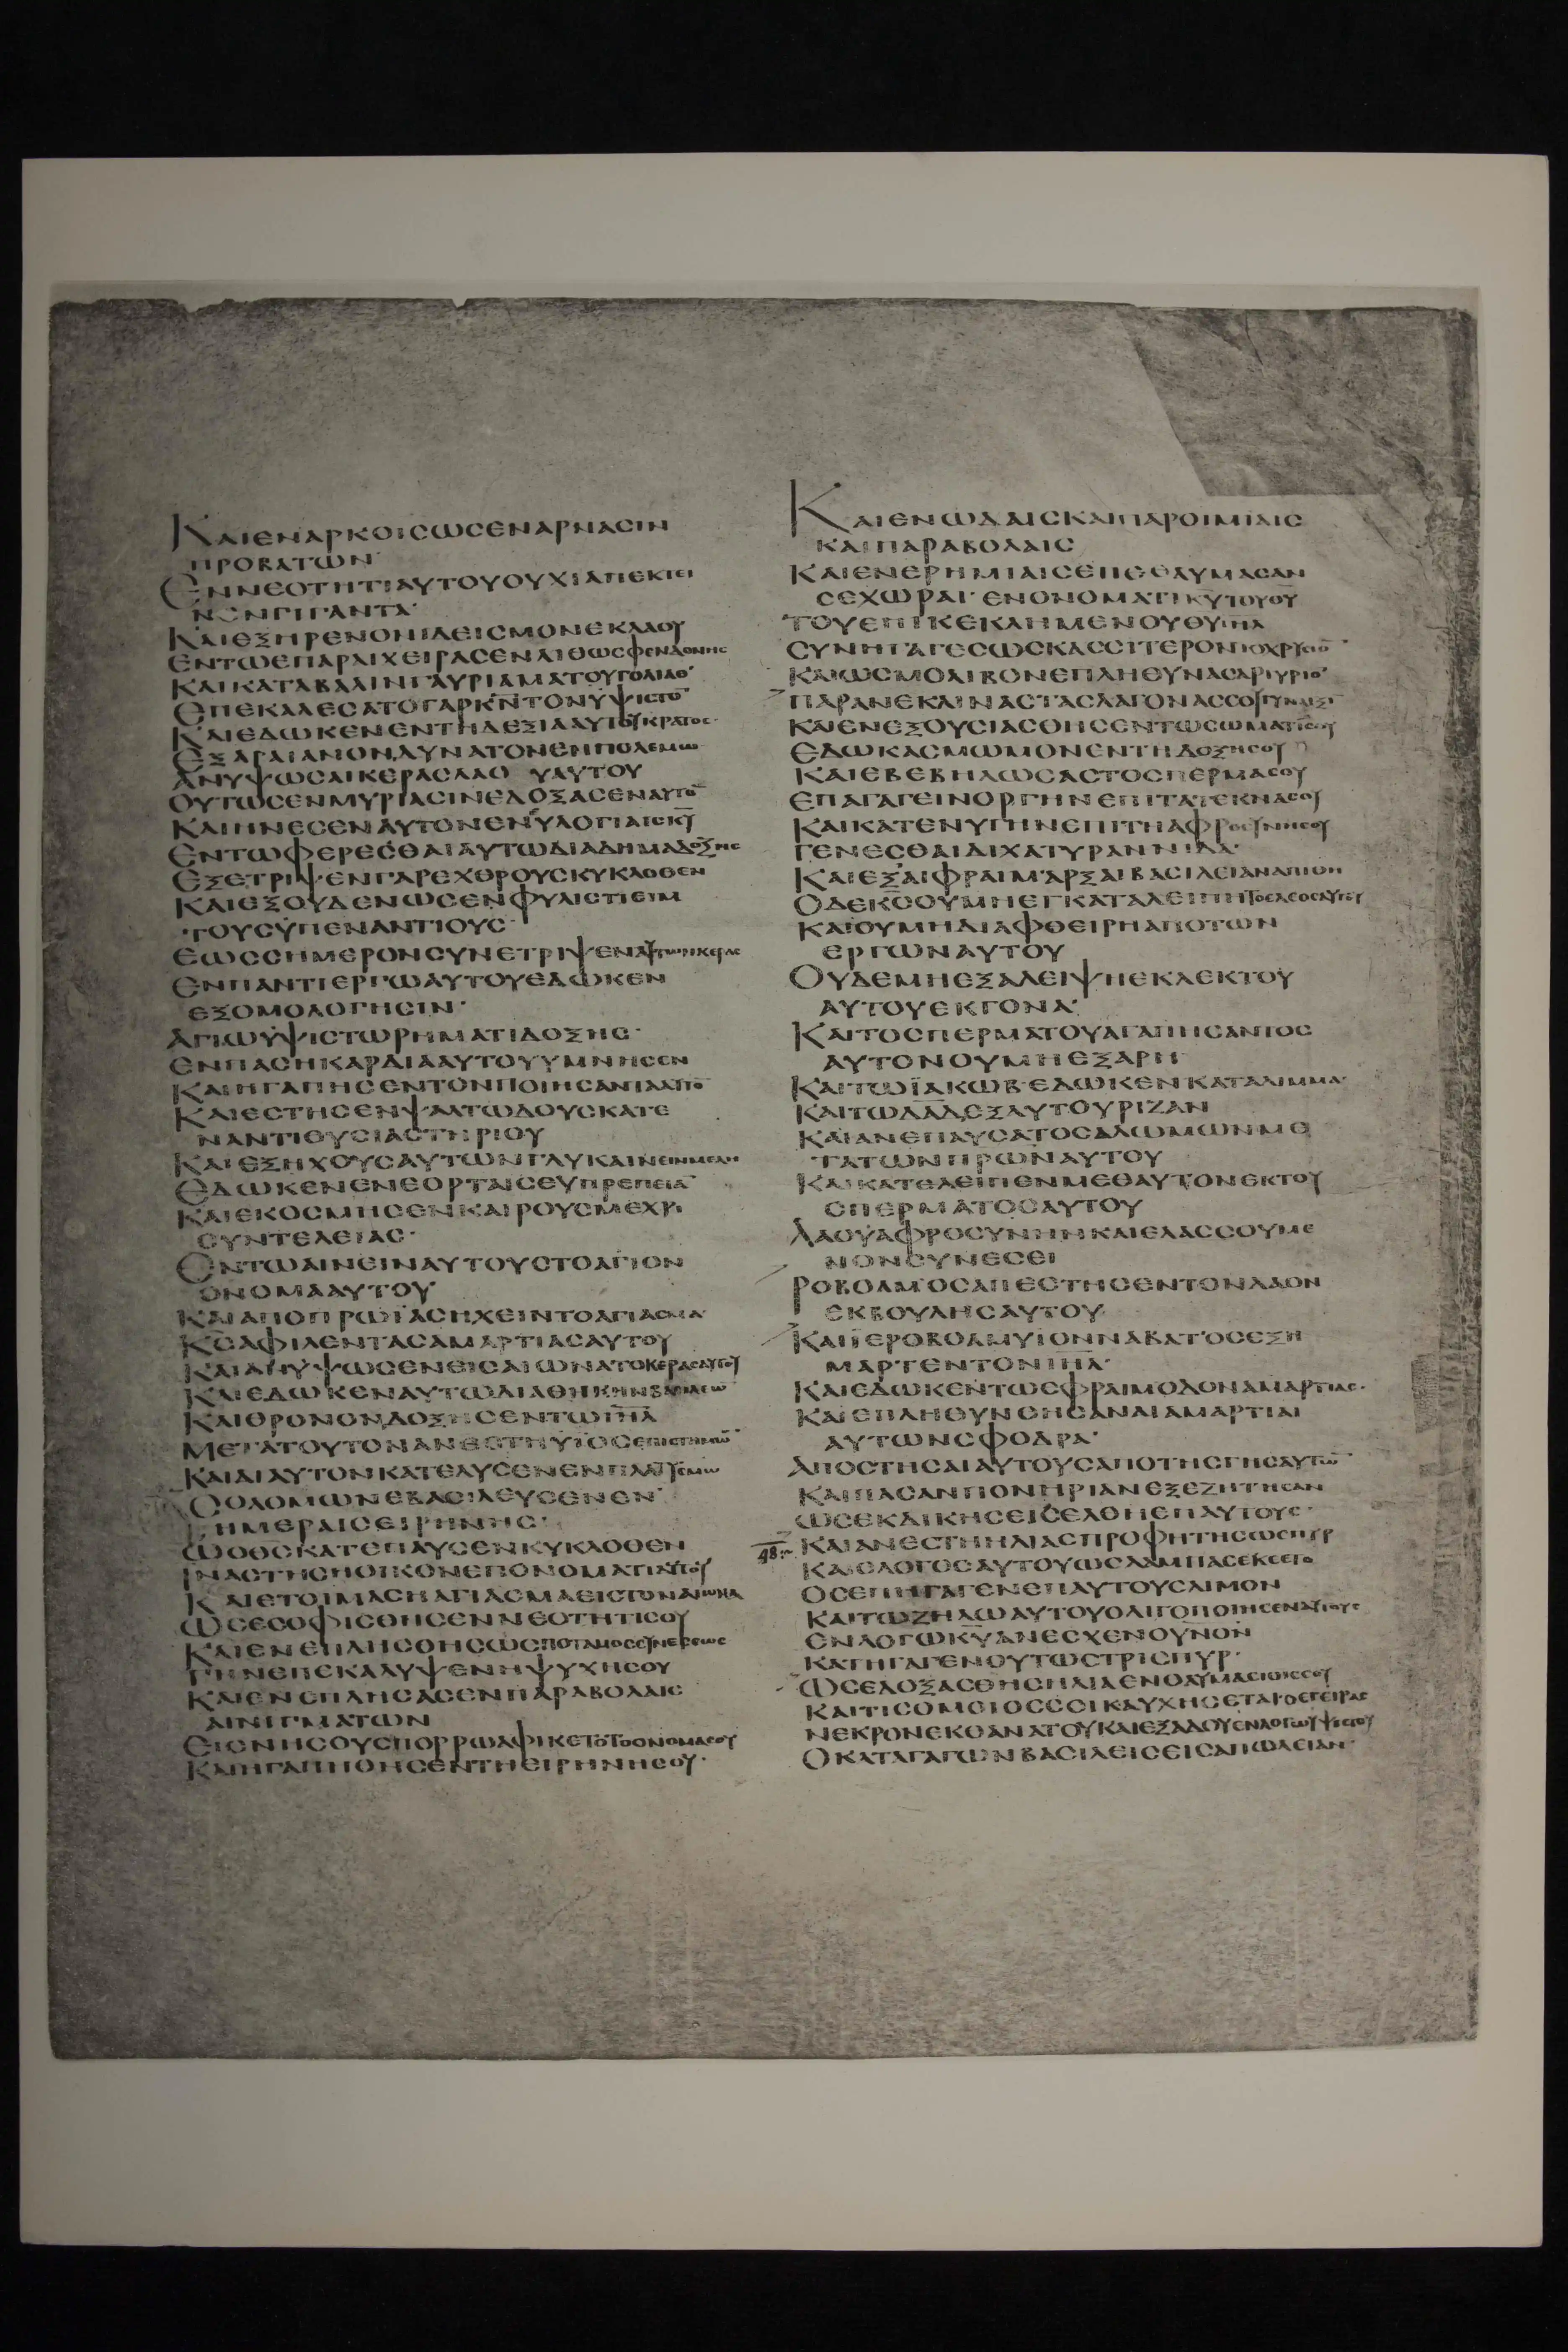 ΚΑΙΕΝΑΡΚΟΙCΩCΕΝΑΡΝΑCΙΝ
ΠΡΟΒΑΤΩΝ
ΕΝΝΕΟΤΗΤΙΑΥΤΟΥΟΥΧΙΑΠΕΚΤΕΙ
ΝΕΝΓΙΓΑΝΤΑ·
ΚΑΙΕΞΗΡΕΝΟΝΙΔΕΙCΜΟΝΕΚΛΑΟΥ
ΕΝΤΩΕΠΑΡΑΙΧΕΙΡΑCΕΝΛΙΘΩCΦΕΝΔΟΝΗC
ΚΑΙΚΑΤΑΒΑΛΙΝΓΑΥΡΙΑΜΑΤΟΥΓΟΛΙΑΘ
ΕΠΕΚΑΛΕCΑΤΟΓΑΡΚ̅Ν̅ΤΟΝΥΨΙCΤΟ̅
ΚΑΙΕΔΩΚΕΝΕΝΤΗΔΕΞΙΑΑΥΤΟΥΚΡΑΤΟC·
ΕΞΑΡΑΙΑΝΟΝΔΥΝΑΤΟΝΕΝΠΟΛΕΜΩ
ΑΝΥΨΩCΑΙΚΕΡΑCΛΑΟΥΑΥΤΟΥ
ΟΥΤΩCΕΝΜΥΡΙΑCΙΝΕΔΟΞΑCΕΝΑΥΤΟ̅
ΚΑΙΗΝΕCΕΝΑΥΤΟΝΕΝΕΥΛΟΓΙΑΙCΚ̅Υ̅
ΕΝΤΩΦΕΡΕCΘΑΙΑΥΤΩΔΙΑΔΗΜΑΔΟΞΗC
ΕΞΕΤΡΙΨΕΝΓΑΡΕΧΘΡΟΥCΚΥΚΛΟΘΕΝ
ΚΑΙΕΞΟΥΔΕΝΩCΕΝΦΥΛΙCΤΙΕΙΜ
ΤΟΥCΫΠΕΝΑΝΤΙΟΥC·
ΕΩCCΗΜΕΡΟΝCΥΝΕΤΡΙΨΕΝΑΥΤΩΝΚΕΡΑC
ΕΝΠΑΝΤΙΕΡΓΩΑΥΤΟΥΕΔΩΚΕΝ
ΕΞΟΜΟΛΟΓΗCΙΝ·
ΑΓΙΩΫΨΙCΤΩΡΗΜΑΤΙΔΟΞΗC·
ΕΝΠΑCΗΚΑΡΔΙΑΑΥΤΟΥΥΜΝΗCΕΝ
ΚΑΙΗΓΑΠΗCΕΝΤΟΝΠΟΙΗCΑΝΤΑΑΥΤΟ̅
ΚΑΙΕCΤΗCΕΝΨΑΛΤΩΔΟΥCΚΑΤΕ
ΝΑΝΤΙΘΥCΙΑCΤΗΡΙΟΥ
ΚΑΙΕΞΗΧΟΥCΑΥΤΩΝΓΛΥΚΑΙΝΕΙΝΜΕΛΗ
ΕΔΩΚΕΝΕΝΕΟΡΤΑΙCΕΥΠΡΕΠΕΙΑ̅
ΚΑΙΕΚΟCΜΗCΕΝΚΑΙΡΟΥCΜΕΧΡΙ
CΥΝΤΕΛΕΙΑC·
ΕΝΤΩΑΙΝΕΙΝΑΥΤΟΥCΤΟΑΓΙΟΝ
ΟΝΟΜΑΑΥΤΟΥ
ΚΑΙΑΠΟΠΡΩΪΑCΗΧΕΙΝΤΟΑΓΙΑCΜΑ
Κ̅C̅ΑΦΙΛΕΝΤΑCΑΜΑΡΤΙΑCΑΥΤΟΥ
ΚΑΙΑΝΥΨΩCΕΝΕΙCΑΙΩΝΑΤΟΚΕΡΑCΑΥΤΟΥ
ΚΑΙΕΔΩΚΕΝΑΥΤΩΔΙΑΘΗΚΗΝΒΑCΙΛΕΩ̅
ΚΑΙΘΡΟΝΟΝΔΟΞΗCΕΝΤΩΙ̅Η̅Λ̅
ΜΕΤΑΤΟΥΤΟΝΑΝΕCΤΗΥΪΟCΕΠΙCΤΗΜΩ̅
ΚΑΙΔΙΑΥΤΟΝΚΑΤΕΛΥCΕΝΕΝΠΛΑΤΥCΜΩ
CΟΛΟΜΩΝΕΒΑCΙΛΕΥCΕΝΕΝ
ΗΜΕΡΑΙCΕΙΡΗΝΗC·
ΩΟΘ̅C̅ΚΑΤΕΠΑΥCΕΝΚΥΚΛΟΘΕΝ
ΙΝΑCΤΗCΗΟΙΚΟΝΕΠΟΝΟΜΑΤΙΑΥΤΟΥ
ΚΑΙΕΤΟΙΜΑCΗΑΓΙΑCΜΑΕΙCΤΟΝΑΙΩΝΑ
ΩCΕCΟΦΙCΘΗCΕΝΝΕΟΤΗΤΙCΟΥ
ΚΑΙΕΝΕΠΛΗCΘΗCΩCΠΟΤΑΜΟCCΥΝΕCΕΩC
ΓΗΝΕΠΕΚΑΛΥΨΕΝΗΨΥΧΗCΟΥ
ΚΑΙΕΝΕΠΛΗCΑCΕΝΠΑΡΑΒΟΛΑΙC
ΑΙΝΙΓΜΑΤΩΝ
ΕΙCΝΗCΟΥCΠΟΡΡΩΑΦΙΚΕΤΟΤΟΟΝΟΜΑCΟΥ
ΚΑΙΗΓΑΠΗΘΗCΕΝΤΗΕΙΡΗΝΗCΟΥ·
ΚΑΙΕΝΩΔΑΙCΚΑΙΠΑΡΟΙΜΙΑΙC
ΚΑΙΠΑΡΑΒΟΛΑΙC
ΚΑΙΕΝΕΡΗΜΙΑΙCΕΠΕΘΑΥΜΑCΑΝ
CΕΧΩΡΑΙ·ΕΝΟΝΟΜΑΤΙΚ̅Υ̅ΤΟΥΘ̅Υ̅
ΤΟΥΕΠΙΚΕΚΛΗΜΕΝΟΥΘ̅Υ̅Ι̅Η̅Λ̅
CΥΝΗΓΑΓΕCΩCΚΑCCΙΤΕΡΟΝΤΟΧΡΥCΙΟ̅
ΚΑΙΩCΜΟΛΙΒΟΝΕΠΛΗΘΥΝΑCΑΡΓΥΡΙΟ̅
ΠΑΡΑΝΕΚΛΙΝΑCΤΑCΛΑΓΟΝΑCCΟΥΓΥΝΑΙΞΙ̅
ΚΑΙΕΝΕΞΟΥCΙΑCΘΗCΕΝΤΩCΩΜΑΤΙCΟΥ
ΕΔΩΚΑCΜΩΜΟΝΕΝΤΗΔΟΞΗCΟΥ
ΚΑΙΕΒΕΒΗΛΩCΑCΤΟCΠΕΡΜΑCΟΥ
ΕΠΑΓΑΓΕΙΝΟΡΓΗΝΕΠΙΤΑΤΕΚΝΑCΟΥ
ΚΑΙΚΑΤΕΝΥΓΗΝΕΠΙΤΗΑΦΡΟCΥΝΗCΟΥ
ΓΕΝΕCΘΑΙΔΙΧΑΤΥΡΑΝΝΙΔΑ·
ΚΑΙΕΞΑΙΦΡΑΙΜΑΡΞΑΙΒΑCΙΛΕΙΑΝΑΠΙΘΗ
ΟΔΕΚ̅C̅ΟΥΜΗΕΓΚΑΤΑΛΕΙΠΗΤΟΕΛΕΟCΑΥΤΟΥ
ΚΑΙΟΥΜΗΔΙΑΦΘΕΙΡΗΑΠΟΤΩΝ
ΕΡΓΩΝΑΥΤΟΥ
ΟΥΔΕΜΗΕΞΑΛΕΙΨΗΕΚΛΕΚΤΟΥ
ΑΥΤΟΥΕΚΓΟΝΑ·
ΚΑΙΤΟCΠΕΡΜΑΤΟΥΑΓΑΠΗCΑΝΤΟC
ΑΥΤΟΝΟΥΜΗΕΞΑΡΗ
ΚΑΙΤΩΪΑΚΩΒΕΔΩΚΕΝΚΑΤΑΛΙΜΜΑ·
ΚΑΙΤΩΔ̅Α̅Δ̅ΕΞΑΥΤΟΥΡΙΖΑΝ
ΚΑΙΑΝΕΠΑΥCΑΤΟCΑΛΩΜΩΝΜΕ
ΤΑΤΩΝΠ̅Ρ̅Ω̅Ν̅ΑΥΤΟΥ
ΚΑΙΚΑΤΕΛΕΙΠΕΝΜΕΘΑΥΤΟΝΕΚΤΟΥ
CΠΕΡΜΑΤΟCΑΥΤΟΥ
ΛΑΟΥΑΦΡΟCΥΝΗΝΚΑΙΕΛΑCCΟΥΜΕ
ΝΟΝCΥΝΕCΕΙ
ΡΟΒΟΑΜΟCΑΠΕCΤΗCΕΝΤΟΝΛΑΟΝ
ΕΚΒΟΥΛΗCΑΥΤΟΥ
ΚΑΙΙΕΡΟΒΟΑΜΥΙΟΝΝΑΒΑΤΟCΕΞΗ
ΜΑΡΤΕΝΤΟΝΙ̅Η̅Λ̅·
ΚΑΙΕΔΩΚΕΝΤΩΕΦΡΑΙΜΟΔΟΝΑΜΑΡΤΙΑC·
ΚΑΙΕΠΛΗΘΥΝΘΗCΑΝΑΙΑΜΑΡΤΙΑΙ
ΑΥΤΩΝCΦΟΔΡΑ·
ΑΠΟCΤΗCΑΙΑΥΤΟΥCΑΠΟΤΗCΓΗCΑΥΤΩ̅
ΚΑΙΠΑCΑΝΠΟΝΗΡΙΑΝΕΞΕΖΗΤΗCΑΝ
ΩCΕΚΔΙΚΗCΕΙCΕΛΘΗΕΠΑΥΤΟΥC·
48
ΚΑΙΑΝΕCΤΗΗΛΙΑCΠΡΟΦΗΤΗCΩCΠΥΡ
ΚΑΙΟΛΟΓΟCΑΥΤΟΥΩCΛΑΜΠΑCΕΚΕΕΤΟ
ΟCΕΠΗΓΑΓΕΝΕΠΑΥΤΟΥCΛΙΜΟΝ
ΚΑΙΤΩΖΗΛΩΑΥΤΟΥΟΛΙΓΟΠΟΙΗCΕΝΑΥΤΟΥC
ΕΝΛΟΓΩΚ̅Υ̅ΑΝΕCΧΕΝΟΥΝΟΝ
ΚΑΤΗΓΑΓΕΝΟΥΤΩCΤΡΙCΠΥΡ·
ΩCΕΔΟΞΑCΘΗCΗΛΙΑΕΝΘΑΥΜΑCΙΟΙCCΟΥ
ΚΑΙΤΙCΟΜΟΙΟCCΟΙΚΑΥΧΗCΕΤΑΙΟΕΓΕΙΡΑC
ΝΕΚΡΟΝΕΚΘΑΝΑΤΟΥΚΑΙΕΞΑΔΟΥΕΝΛΟΓΩΥΨΙCΤΟΥ
ΟΚΑΤΑΓΑΓΩΝΒΑCΙΛΕΙCΕΙCΑΠΩΛΕΙΑΝ·